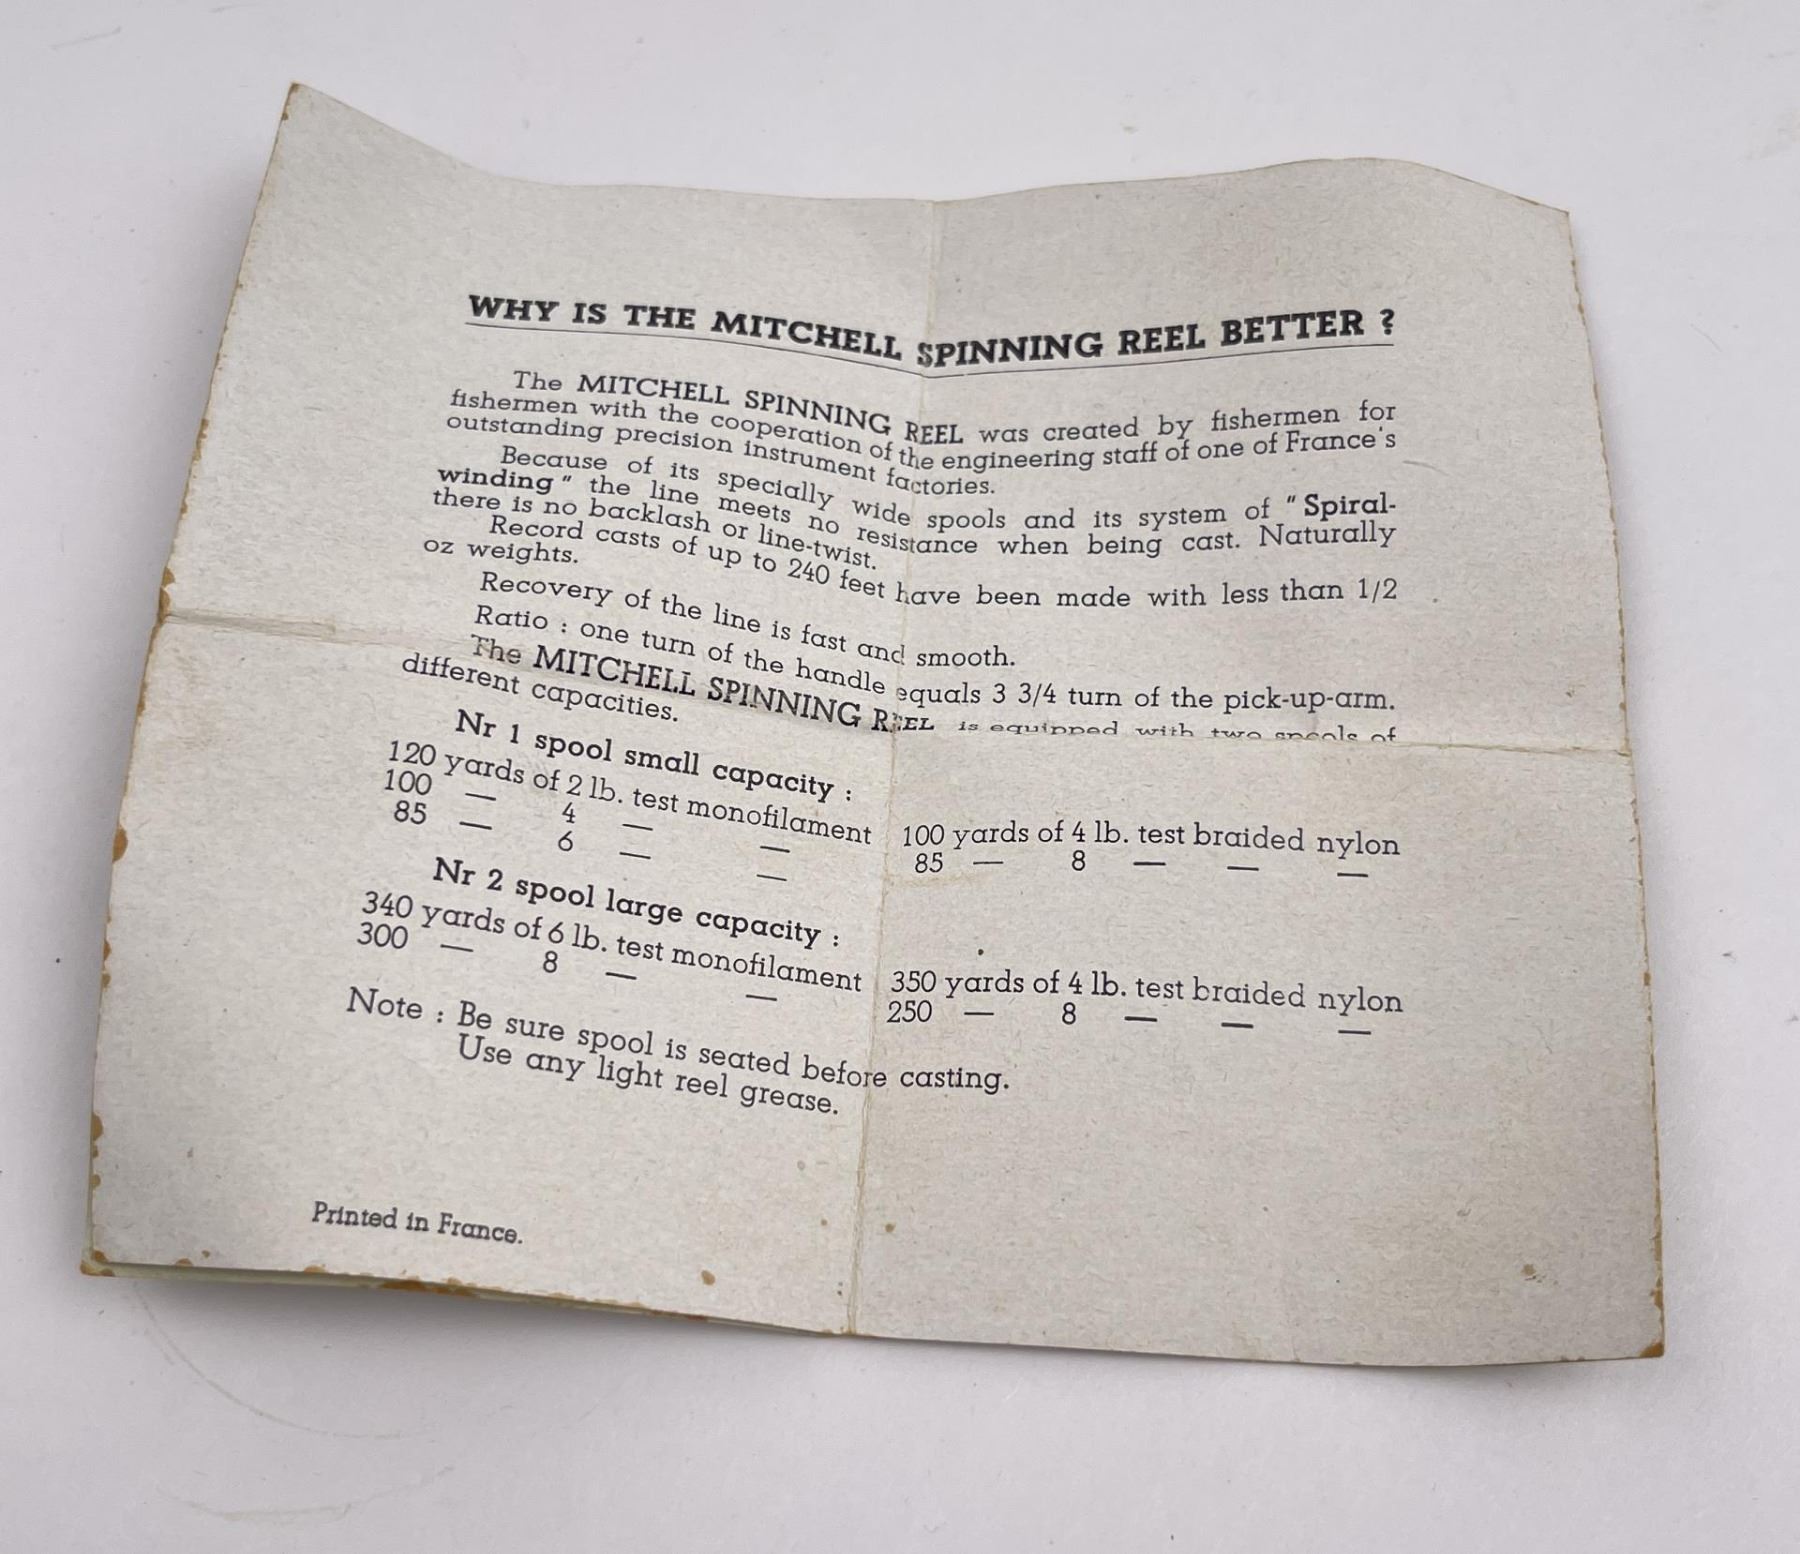 WHY IS THE MITCHELL SPINNING REEL BETTER ?
The MITCHELL SPINNING REEL was created by fishermen for
fishermen with the cooperation of the engineering staff of one of France's
outstanding precision instrument factories.
Because of its specially wide spools and its system of "Spiral-
winding" the line meets no resistance when being cast. Naturally
there is no backlash or line-twist.
Record casts of up to 240 feet have been made with less than 1/2
oz weights.
Recovery of the line is fast and smooth.
Ratio : one turn of the handle equals 3 3/4 turn of the pick-up-arm.
The MITCHELL SPINNING REEL is equipped with two spools of
different capacities.
Nr 1 spool small capacity :
120 yards of 2 lb. test monofilament 100 yards of 4 lb. test braided nylon
100 — 4 — — 85 — 8 — — —
85 — 6 — —
Nr 2 spool large capacity :
340 yards of 6 lb. test monofilament 350 yards of 4 lb. test braided nylon
300 — 8 — — 250 — 8 — — —
Note : Be sure spool is seated before casting.
Use any light reel grease.
Printed in France.